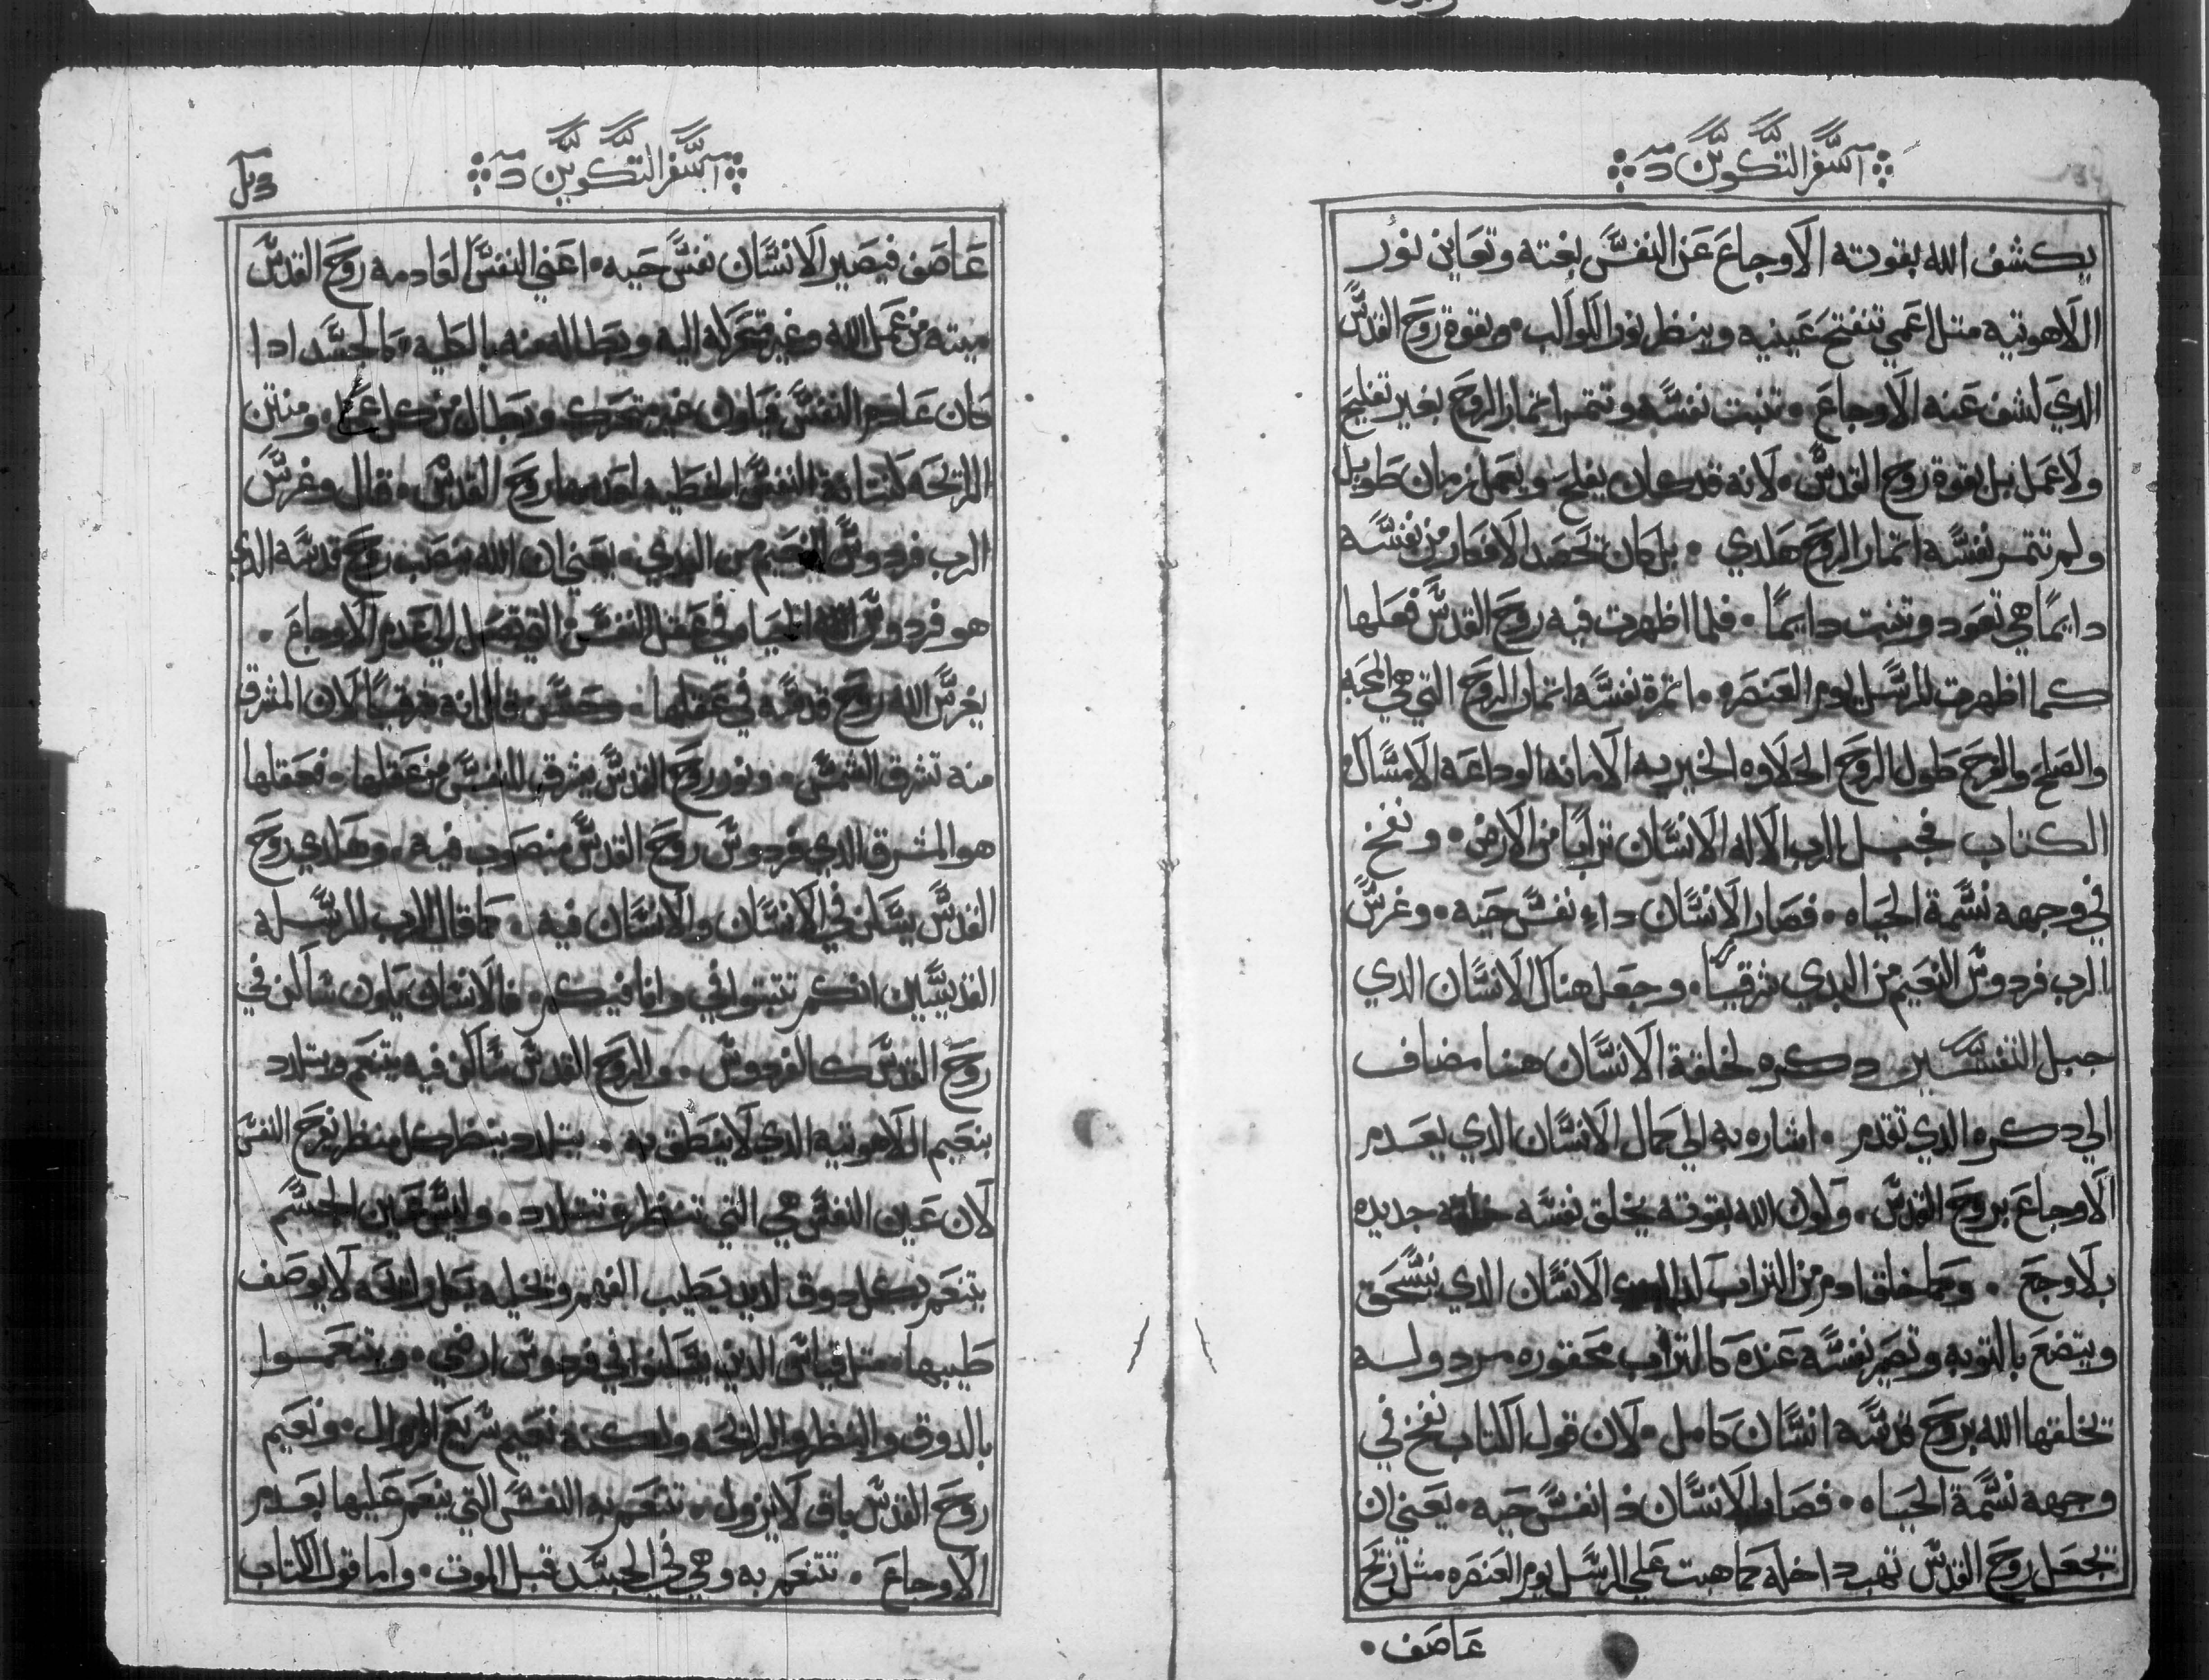 سفر التكوين
يكشف الله بقوته الاوجاع عن النفس بغته وتعاين نور
اللاهوتيه متل اعمي تنفتح عينيه وينظر نور الكواكب • وبقوة روح القدس
الدي كشف عنه الاوجاع • تنبت نفسه وتتمر اتمار الروح بغير تفليح
ولا عمل بل بقوة روح القدس • لانه قد كان يفلح ويعمل زمان طويل
ولم تتمر نفسه اتمار الروح هلدي • بل كان تحصد الافكار من نفسه
دايمًا هي تعود وتنبت دايمًا • فلما اظهرت فيه روح القدس فعلها
كما اظهرت للرسل يوم العنصره • اتمرة نفسه اتمار الروح التي هي المحبه
والصلح والفرح طول الروح الحلاوه الخيريه الامانه الوداعه الامساك
الكتاب فجبل الرب الاله الانسان ترابًا من الارض • ونفخ
في وجهه نسمة الحياه • فصار الانسان داء نفس حيه • وغرس
الرب فردوس النعيم من البدي شرقيًا • وجعل هناك الانسان الدي
جبل التفسير دكره لخلقة الانسان هنا مضاف
الي دكره الدي تقدم • اشاره به الي كمال الانسان الدي يعدم
الاوجاع بروح القدس • وكون الله بقوته يخلق نفسه خلقه جديده
بلا وجع • وكما خلق ادم من التراب الانسان الدي ينسحق
ويتضع بالتوبه وتصير نفسه عنده كالتراب محقوره مردوله
تخلقها الله بروح قدسه انسان كامل • لان قول الكتاب نفخ في
وجهه نسمة الحياه • فصار الانسان دا نفس حيه • يعني ان
تجعل روح القدس تهب داخله كما هبت علي الرسل يوم العنصره مثل ريح
عاصف •
سفر التكوين
عاصف فيصير الانسان نفس حيه • اعني النفس العادمه روح القدس
ميته من عمل الله وغير متحركه اليه وبطاله منه بالكليه • كالجسد ادا
كان عادم النفس فيكون غير متحرك وبطال من كل عمل • ومنتن
الرائحه لنتانة النفس الخطيه لعدمها روح القدس • قال وغرس
الرب فردوس النعيم من البدي • يعني ان الله ينصب روح قدسه الدي
هو فردوس الله الحيا مي في عقل النفس التي تصل الي عدم الاوجاع •
يغرس الله روح قدسه في عقلها • حسن قال انه شرقيًا لان المشرق
منه تشرق الشمس • ونور روح القدس يشرق للنفس من عقلها • فعقلها
هو المشرق الدي فردوس روح القدس منصوب فيه • وهلدي روح
القدس يسكن في الانسان والانسان فيه • كما قال الرب للرسله
القديسين انكم تتبتوا في وانا فيكم • فالانسان يكون ساكن في
روح القدس كالفردوس • والروح القدس ساكن فيه يتنعم ويتلدد
بنعيم اللاهوتيه الدي لا ينطق به • يتلدد بنظر كل منظر يفرح النفس
لان عين النفس هي التي تنظر وتتلدد • وليس عين الجسم
يتنعم بكل دوق لديد يطيب الفهم وتخيله بكل رايحه لا يوصف
طيبها • متل قياس الدين يسكنوا في فردوس ارضي • ويتنعموا
بالدوق والنظر والرائحه ولكنه نعيم سريع الزوال • ونعيم
روح القدس باق لا يزول • تتنعم به النفس التي ينعم عليها بعدم
الاوجاع • تتنعم به وهي في الجسد قبل الموت • واما قول الكتاب